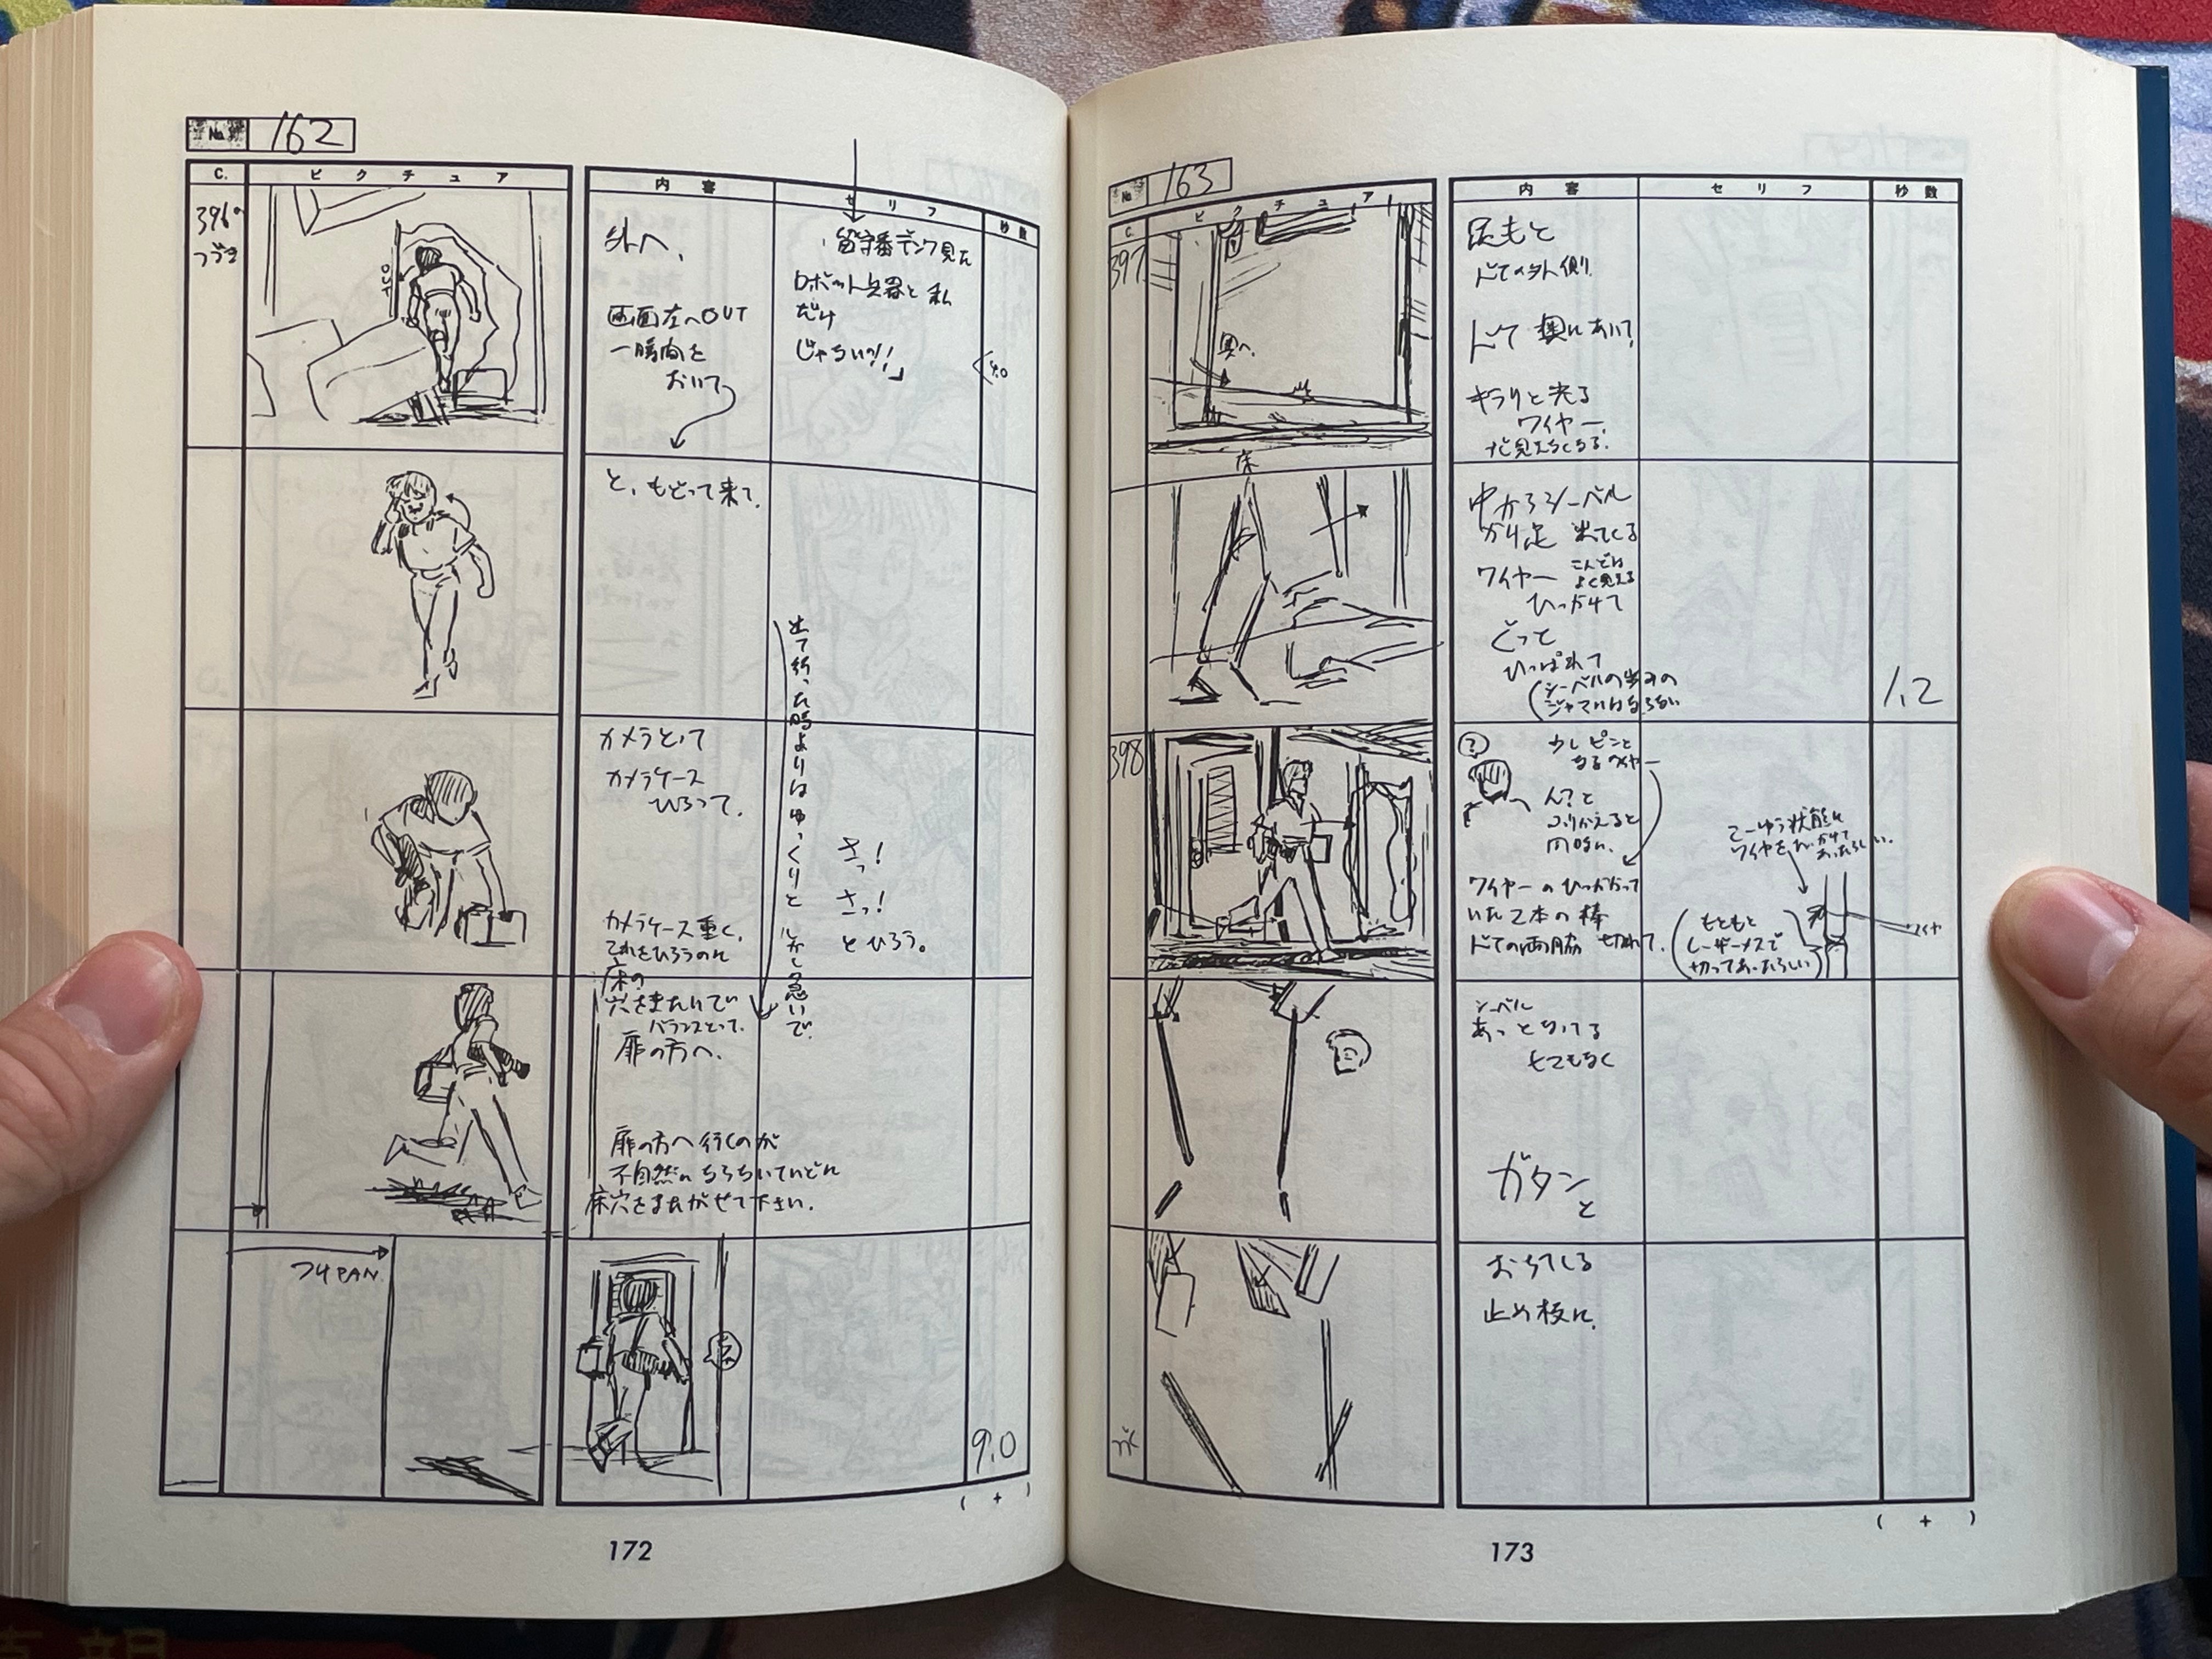 No. 162
C.
ピクチュア
内容
セリフ
秒数
396の
つづき
OUT
外へ、
画面左へOUT
一瞬間を
おいて
留守番デンワ見た
ロボット兵器と私
だけ
じゃない?!!」
4.0
と、もどって来て、
カメラとって
カメラケース
ひろって、
カメラケース重く、
それをひろうのに
床の
穴をまたいで
バランスとって、
扉の方へ、
出て行った時よりはゆっくりと しかし急いで、
さっ!
さっ!
とひろう。
扉の方へ行くのが
不自然にならないていどに
床穴をまたがせて下さい。
フォロPAN
9.0
( + )
172
No. 163
C.
ピクチュア
内容
セリフ
秒数
397
奥へ
床
足もと
ドアの外側
ドア 奥にあいて、
キラリと光る
ワイヤー、
すぐ見えなくなる。
中からシーベル
の足 出てくる
ワイヤー こんどは
よく見える
ひっかけて
ぐっと
ひっぱれて
(シーベルの歩みの
ジャマにはならない
1.2
398
?
少しピンと
なるワイヤー
ん?と
ふりかえると
同時に、
ワイヤーのひっかかって
いた2本の棒
ドアの両脇 切れて、
こーゆう状態に
ワイヤをひっかけて
あったらしい。
(もともと
レーザーメスで
切ってあったらしい)
ワイヤ
シーベル
あっと
までもなく
ガタン
と
おちてくる
止め板に、
( + )
173